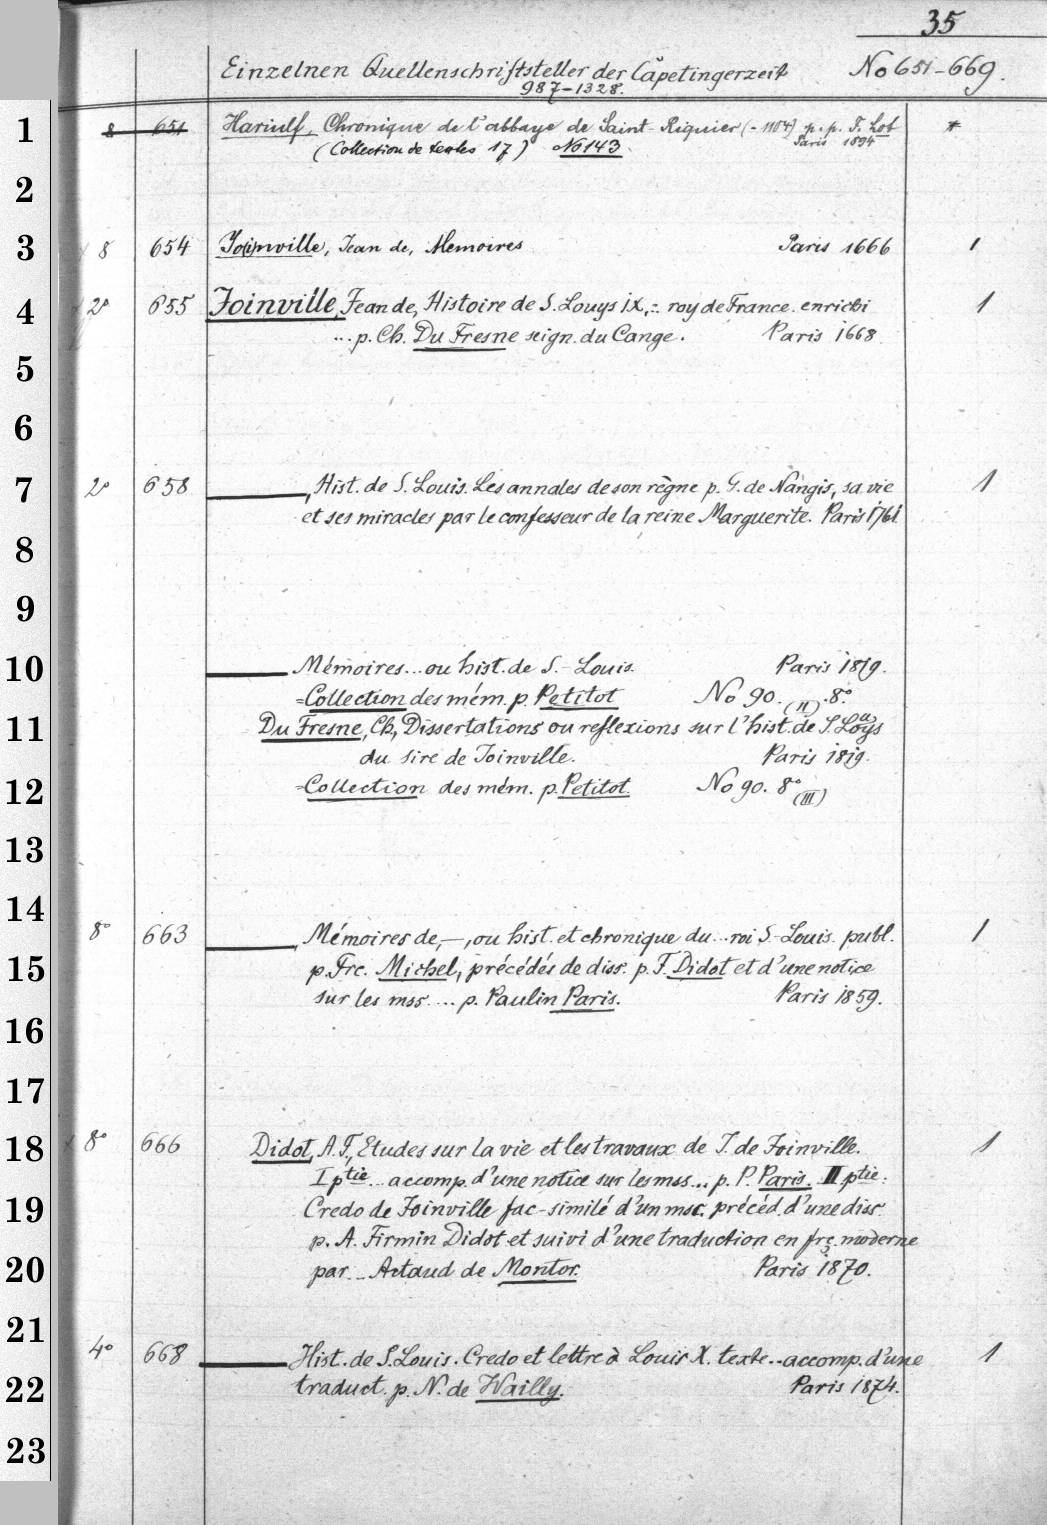 35
Einzelnen Quellenschriftsteller der Capetingerzeit No 651-669.
987-1328.
1 8 651 Hariulf, Chronique de l'abbaye de Saint-Riquier (-1104) p. p. F. Lot *
(Collection de textes 17) No 143 Paris 1894
2
3 8 654 Jo(i)nville, Jean de, Memoires Paris 1666 1
4 2° 655 Joinville, Jean de, Histoire de S. Louys IX, .. roy de France. enrichi 1
... p. Ch. Du Fresne seign. du Cange. Paris 1668
5
6
7 2° 658 ———, Hist. de S. Louis. Les annales de son règne p. G. de Nangis, sa vie 1
et ses miracles par le confesseur de la reine Marguerite. Paris 1761
8
9
10 ——— Mémoires... ou hist. de S.- Louis. Paris 1819.
=Collection des mém. p. Petitot No 90. (II) 8°
11 Du Fresne, Ch., Dissertations ou reflexions sur l'hist. de S. Louys
du sire de Joinville. Paris 1819.
12 =Collection des mém. p. Petitot No 90. 8° (III)
13
14
8° 663 ———, Mémoires de, —, ou hist. et chronique du... roi S.-Louis. publ. 1
15 p. Frc. Michel, précédés de diss. p. F. Didot et d'une notice
sur les mss .... p. Paulin Paris. Paris 1859.
16
17
18 8° 666 Didot, A. F., Etudes sur la vie et les travaux de J. de Joinville. 1
I ptie... accomp. d'une notice sur les mss... p. P. Paris. II ptie:
19 Credo de Joinville fac-similé d'un msc. précéd. d'une diss.
p. A. Firmin Didot et suivi d'une traduction en frç. moderne
20 par... Artaud de Montor. Paris 1870.
21
4° 668 ——— Hist. de S. Louis. Credo et lettre à Louis X. texte.. accomp. d'une 1
22 traduct. p. N. de Wailly. Paris 1874.
23